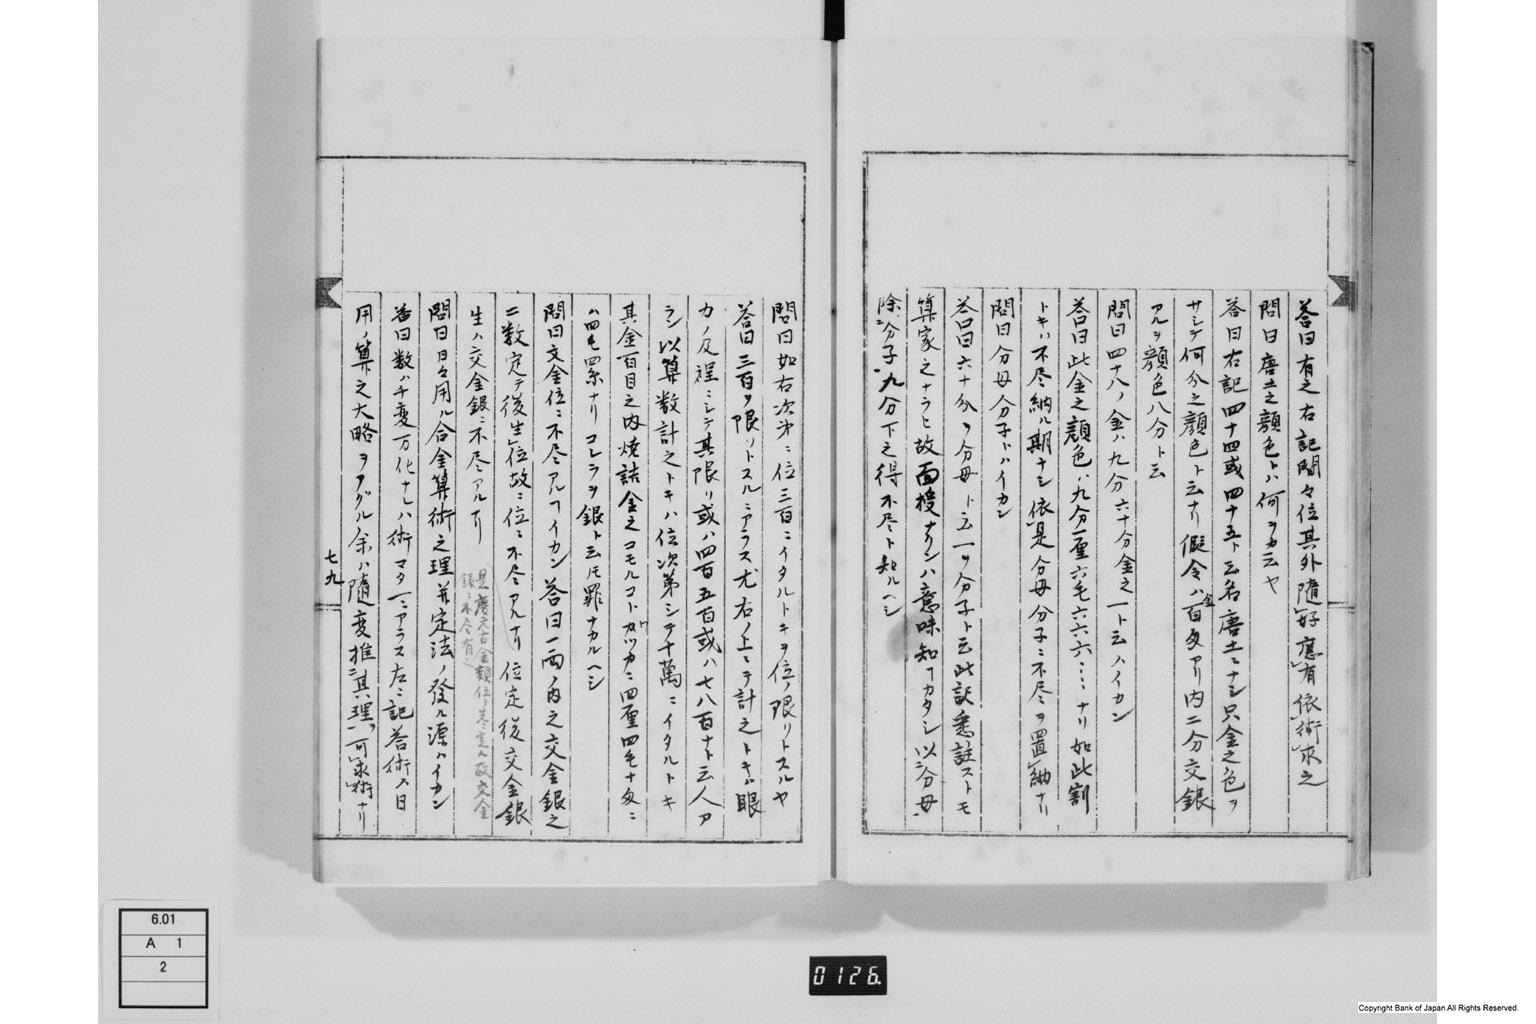 答曰有之右記間々位其外隨好應有依術求之
問曰唐土之顔色トハ何ヲカ云ヤ
答曰右記四十四或四十五ト云名唐土ニナシ只金之色ヲ
サシテ何分之顔色ト云ナリ假令ハ金百匁アリ内二分交銀
アルヲ顔色八分ト云
問曰四十八ノ金ハ九分六十分金之一ト云ハイカン
答曰此金之顔色ハ九分一厘六毛六六六……ナリ如此割
トキハ不尽納ル期ナシ依是分母分子ニ不尽ヲ置納ナリ
問曰分母分子トハイカン
答曰六十分ヲ分母ト云一ヲ分子ト云此訳悉註ストモ
算家之ナラヒ故面授ナクンハ意味知ヿカタシ以分母
除分子九分下之得不尽ト知ルヘシ
問曰如右次第ニ位三百ニイタルトキヲ位ノ限リトスルヤ
答曰三百ヲ限リトスルニアラス尤右ノ上ニテ計之トキハ眼
力ノ及程ニシテ其限リ或ハ四百五百或ハ七八百ナト云人ア
ラシ以算数計之トキハ位次第シテ十萬ニイタルトキ
其金百目之内焼詰金之コモルコトカツカニ四厘四毛十匁ニ
ハ四毛四糸ナリコレラヲ銀ト云ドモ罪ナカルヘシ
問曰文金位ニ不尽アルヿイカン 答曰一両ノ内之交金銀之
二数定テ後生位故ニ位ニ不尽アルナリ 位定後交金銀
生ハ交金銀ニ不尽アルナリ
問曰日々用ル合金算術之理并定法ノ發ル源ハイカン
答曰数ハ千変万化ナレハ術マタ一ニアラス左ニ記答術ハ日
用ノ算之大略ヲアグル余ハ隨変推其理可求術ナリ
七九
6.01
A 1
2
0126.
Copyright Bank of Japan All Rights Reserved.